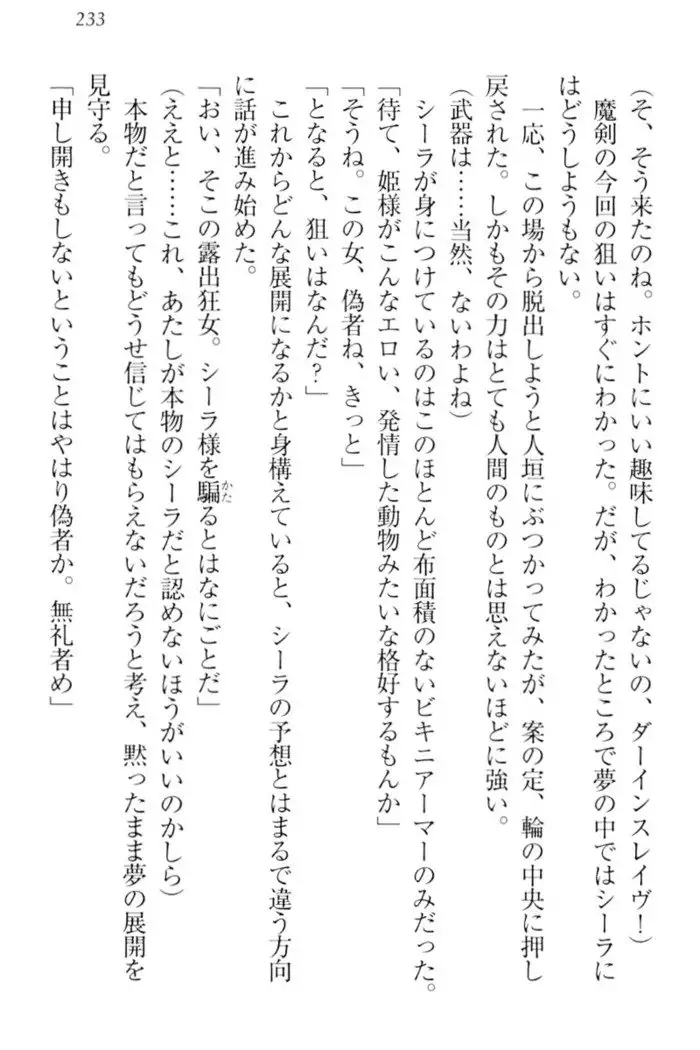 233
（そ、そう来たのね。ホントにいい趣味してるじゃないの、ダーインスレイヴ！）
魔剣の今回の狙いはすぐにわかった。だが、わかったところで夢の中ではシーラに
はどうしようもない。
一応、この場から脱出しようと人垣にぶつかってみたが、案の定、輪の中央に押し
戻された。しかもその力はとても人間のものとは思えないほどに強い。
（武器は……当然、ないわよね）
シーラが身につけているのはこのほとんど布面積のないビキニアーマーのみだった。
「待て、姫様がこんなエロい、発情した動物みたいな格好するもんか」
「そうね。この女、偽者ね、きっと」
「となると、狙いはなんだ？」
これからどんな展開になるかと身構えていると、シーラの予想とはまるで違う方向
に話が進み始めた。
「おい、そこの露出狂女。シーラ様を騙かたるとはなにごとだ」
（ええと……これ、あたしが本物のシーラだと認めないほうがいいのかしら）
本物だと言ってもどうせ信じてはもらえないだろうと考え、黙ったまま夢の展開を
見守る。
「申し開きもしないということはやはり偽者か。無礼者め」